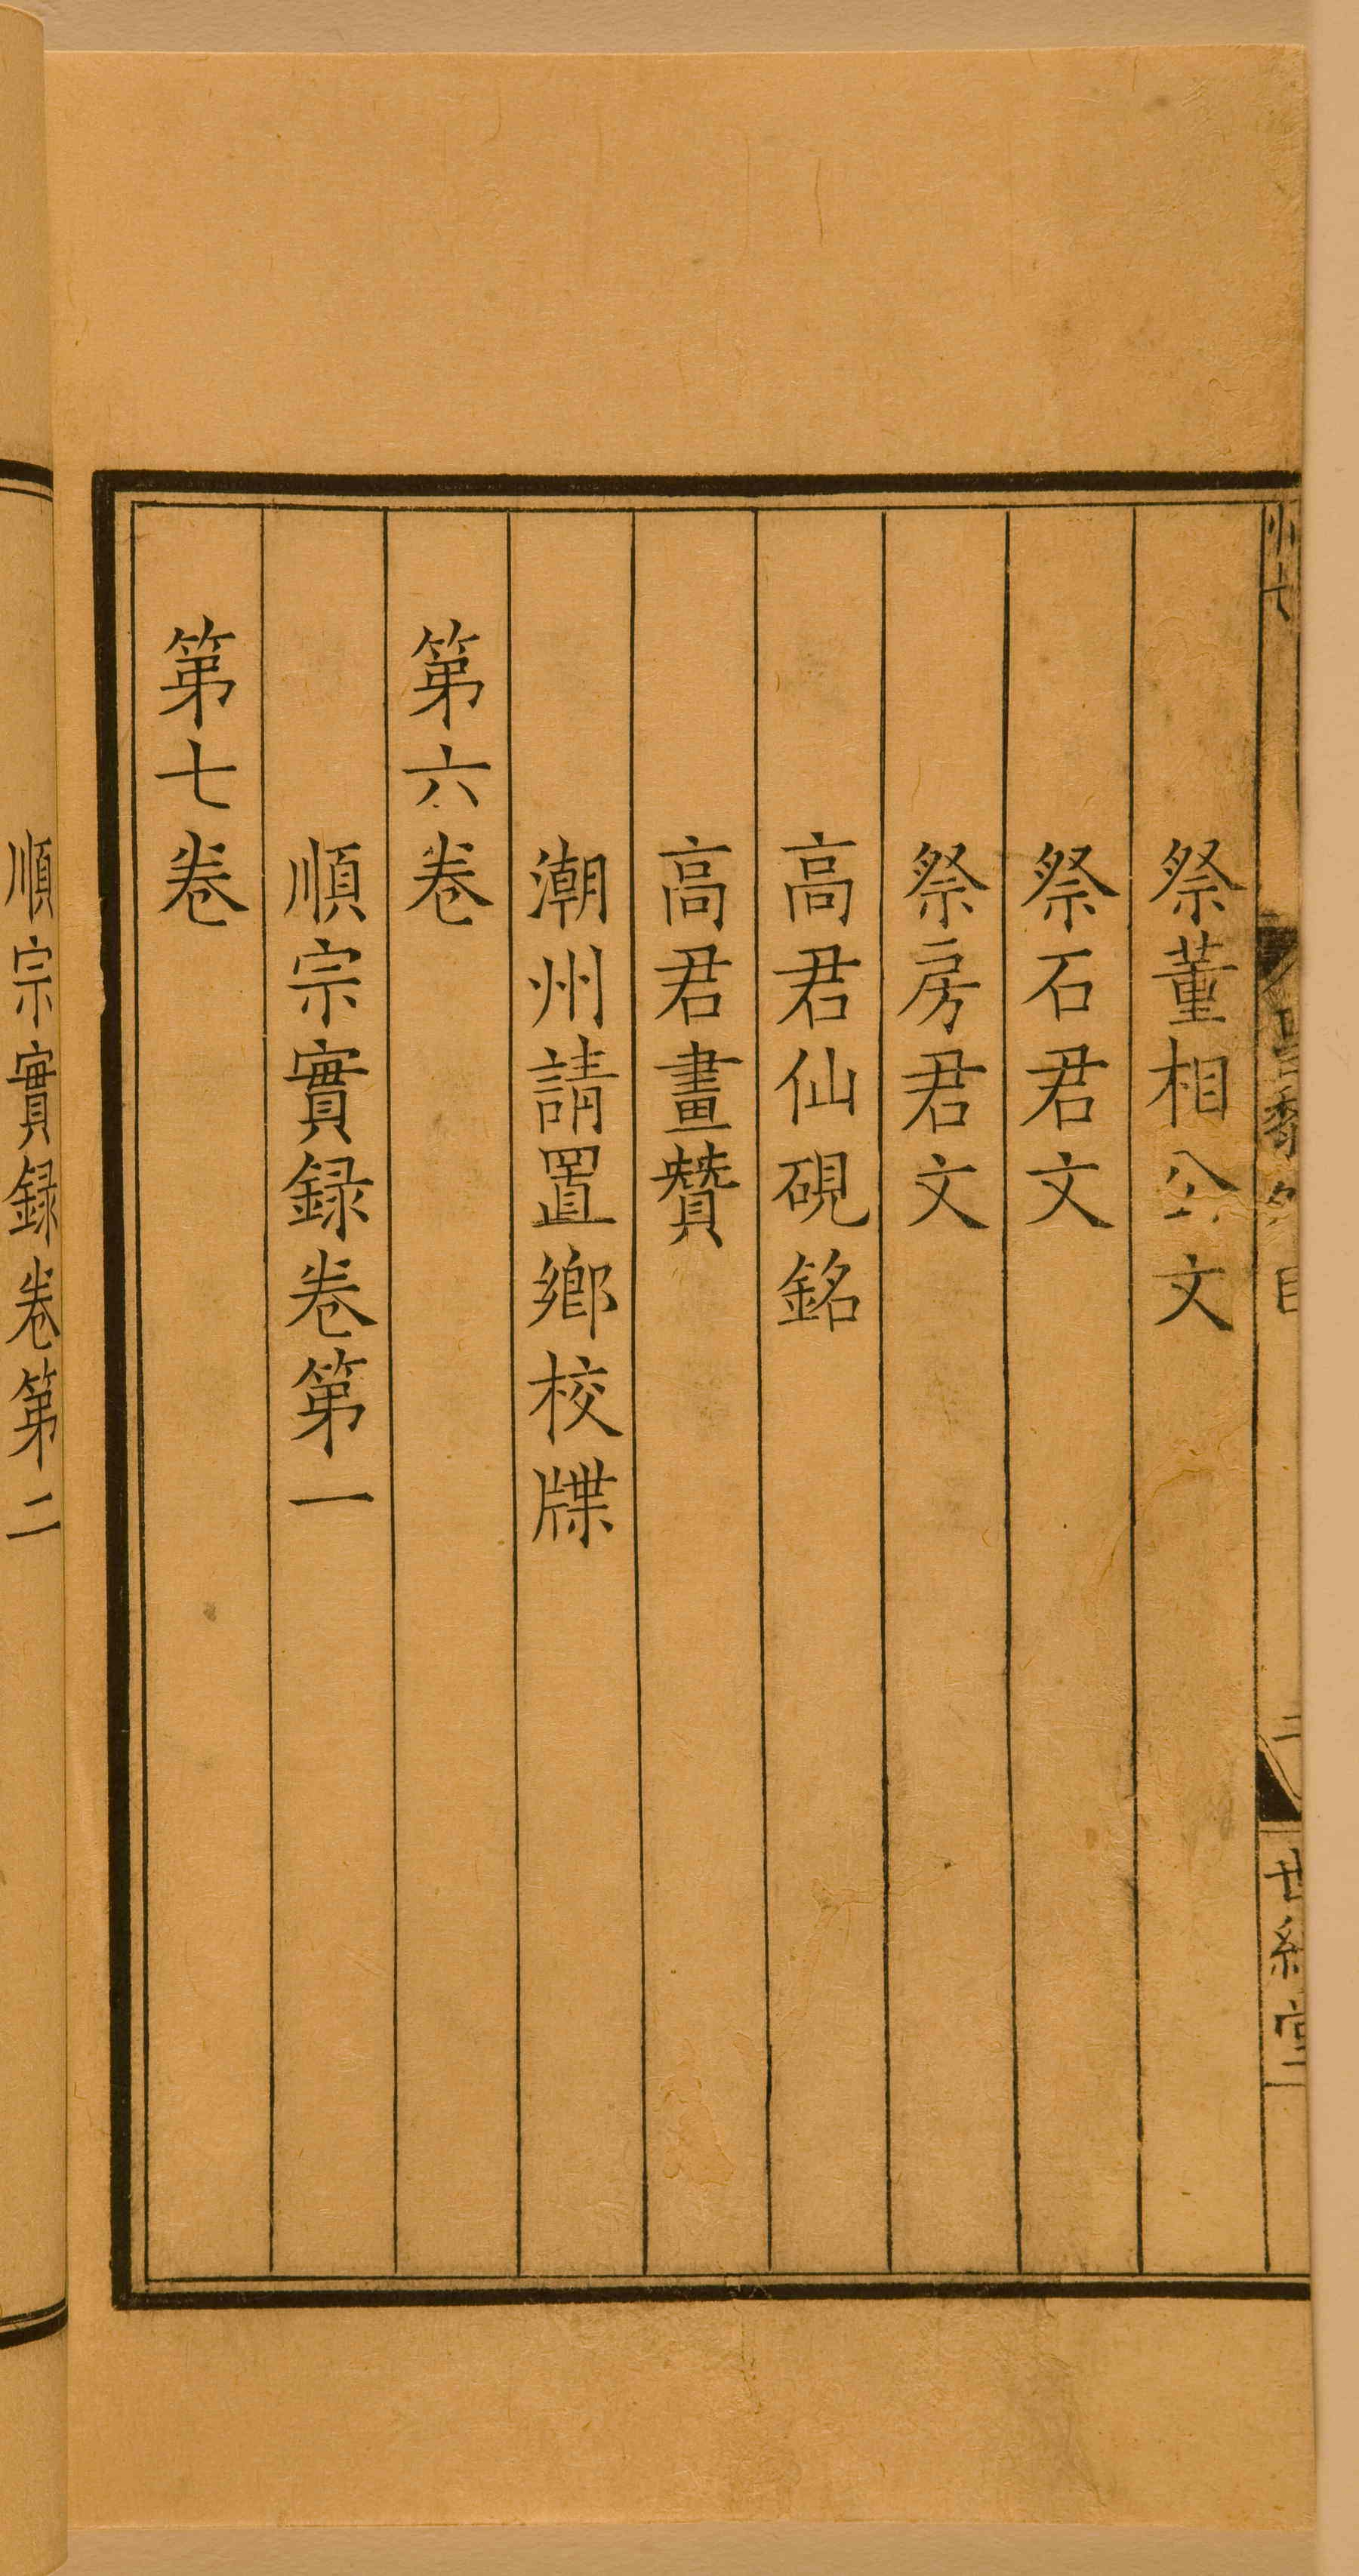 祭董相公文
祭石君文
祭房君文
高君仙硯銘
高君畫贊
潮州請置鄉校牒
第六卷
順宗實録卷第一
第七卷
順宗實録卷第二